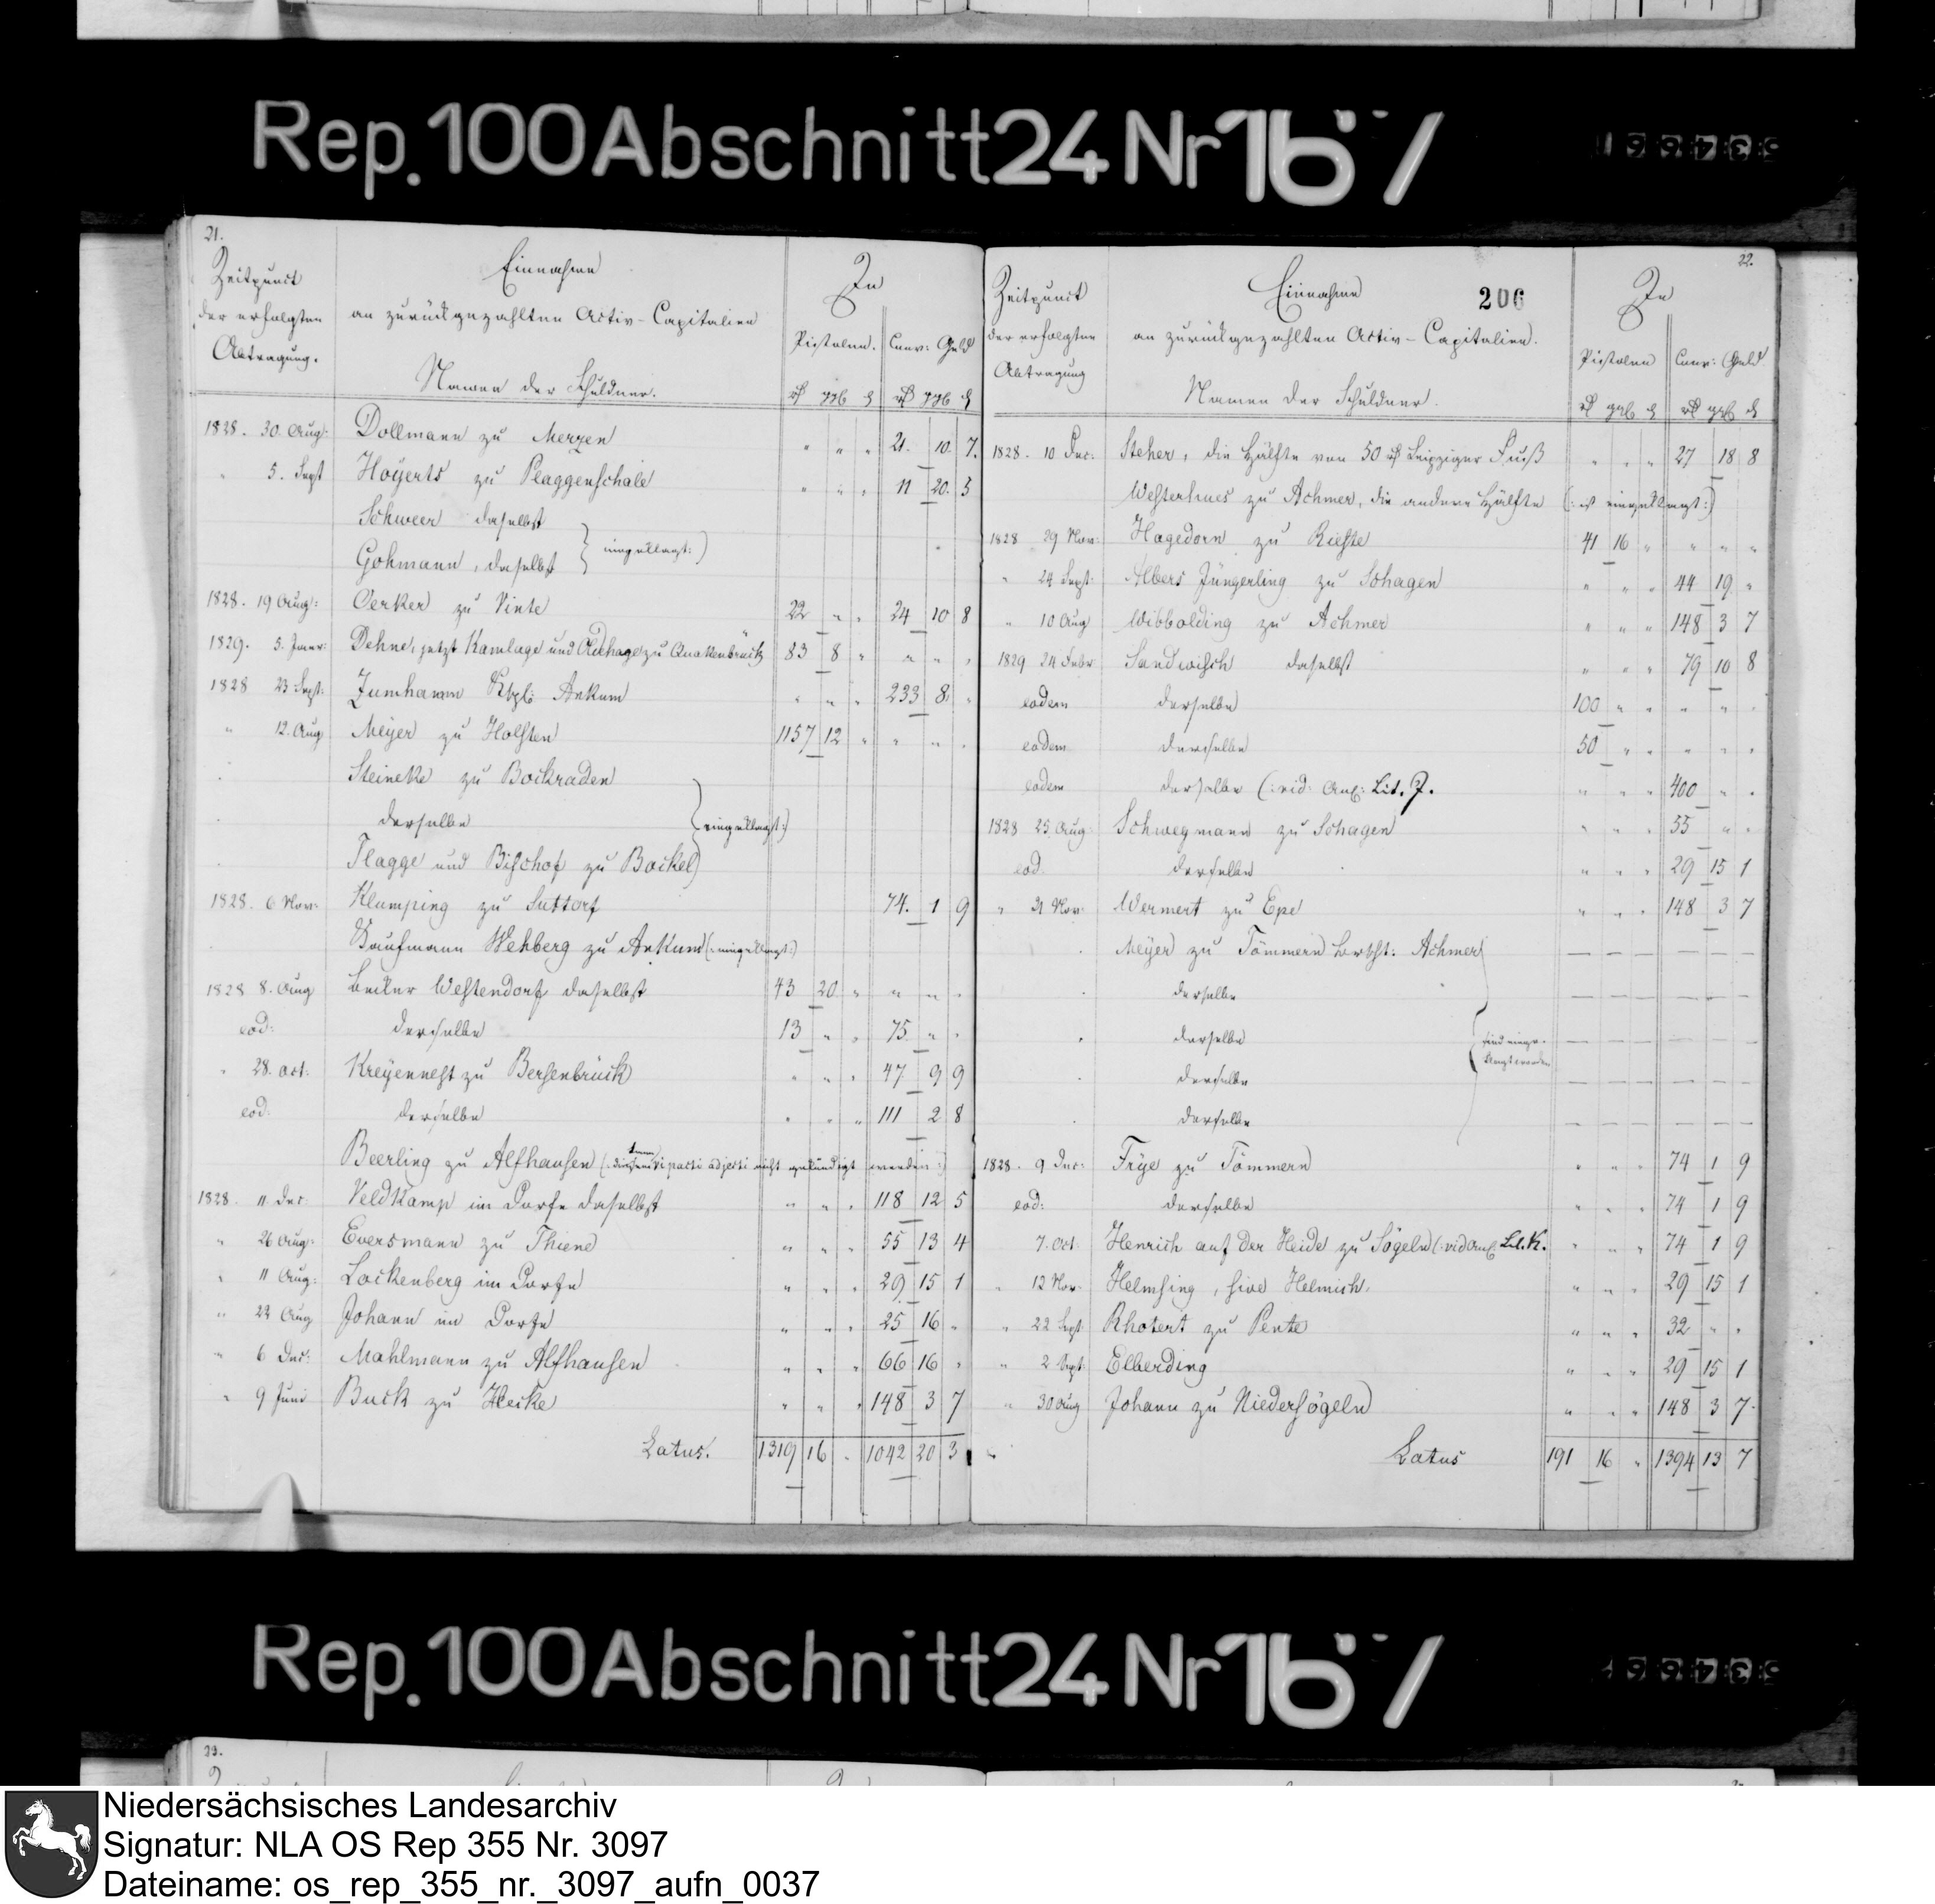 Rep. 100 Abschnitt 24 Nr 167
21.
Zeitpunct
der erfolgten
Abtragung.
Einnahme
an zurückgezahlten Activ-Capitalien
Namen der Schuldner.
In
Pistolen. Conv: Geld
1828. 30. Aug: Dollmann zu Merzen " " " 21. 10. 7.
" 5. Sept Hoyerts zu Plaggenschale " " " 11 20. 5
Schweer daselbst
Gohmann, daselbst } eingeklagt:)
1828. 19 Aug: Oerker zu Vinte 22 " " 24 10 8
1829. 5. Janr: Dehne, jetzt Kamlage und zu Quakenbrück 83 8 " " " "
1828 23 Sept: Zumhamm Kspl: Ankum " " " 233 8 "
" 12. Aug Meyer zu Holsten 1157 12 " " " "
Steineke zu Bockraden
derselbe } eingeklagt:)
Flagge und Bischof zu Bockel
1828. 6 Nov: Klumping zu Suttorf 74. 1 9
Kaufmann Wehberg zu Ankum (: eingeklagt:)
1828 8. Aug Becker Westendorf daselbst 43 20 " " " "
eod: derselbe 13 " " 75 " "
" 28. Oct: Kreyennest zu Bersenbrück " " " 47 9 9
eod: derselbe " " " 111 2 8
Beerling zu Alfhausen (: pacti adjecti nicht gekündigt werden:)
1828. 11 Dec Veldkamp im Dorfe daselbst " " " 118 12 5
" 26 Aug: Eversmann zu Thiene " " " 55 13 4
" 11 Aug: Lockenberg im Dorfe " " " 29 15 1
" 22 Aug Johann im Dorfe " " " 25 16 "
" 6 Dec: Mahlmann zu Alfhausen " " " 66 16 "
" 9 Juni Buck zu Hecke " " " 148 3 7
Latus. 1319 16 " 1042 20 3
22.
206
Zeitpunct
der erfolgten
Abtragung
Einnahme
an zurückgezahlten Activ-Capitalien.
Namen der Schuldner.
In
Pistolen Conv: Geld
1828. 10 Dec: Steher, die Hälfte von 50 Leipziger Fuß " " " 27 18 8
Westerhues zu Achmer, die andere Hälfte (: ist eingeklagt:)
1828 29 Nov: Hagedorn zu Rieste 41 16 " " " "
" 24 Sept: Albers Jüngerling zu Schagen " " " 44 19 "
" 10 Aug Wibbolding zu Achmer " " " 148 3 7
1829 24 Febr Sandwisch daselbst " " " 79 10 8
eodem derselbe 100 " " " " "
eodem derselbe 50 " " " " "
eodem derselbe (: vid: Anl: Lit. J. " " " 400 " "
1828 25 Aug: Schwegmann zu Schagen " " " 55 " "
eod: derselbe " " " 29 15 1
" 21 Nov: Wermert zu Epe " " " 148 3 7
Meyer zu Tömmern Achmer — — — — — —
derselbe — — — — — —
derselbe } sind einge- — — — — — —
derselbe klagt worden — — — — — —
derselbe — — — — — —
1828. 9 Dec: Frye zu Tömmern " " " 74 1 9
eod: derselbe " " " 74 1 9
7. Oct: Henrich auf der Heide zu Sögeln (: vid Anl: Lit. K. " " " 74 1 9
" 12 Nov: Helmsing, sive Helmich. " " " 29 15 1
" 22 Sept Rhotert zu Pente " " " 32 " "
" 2 Sept: Elberding " " " 29 15 1
" 30 Aug Johann zu Niedersögeln " " " 148 3 7
Latus 191 16 " 1394 13 7
Rep. 100 Abschnitt 24 Nr 167
23.
Niedersächsisches Landesarchiv
Signatur: NLA OS Rep 355 Nr. 3097
Dateiname: os_rep_355_nr._3097_aufn_0037